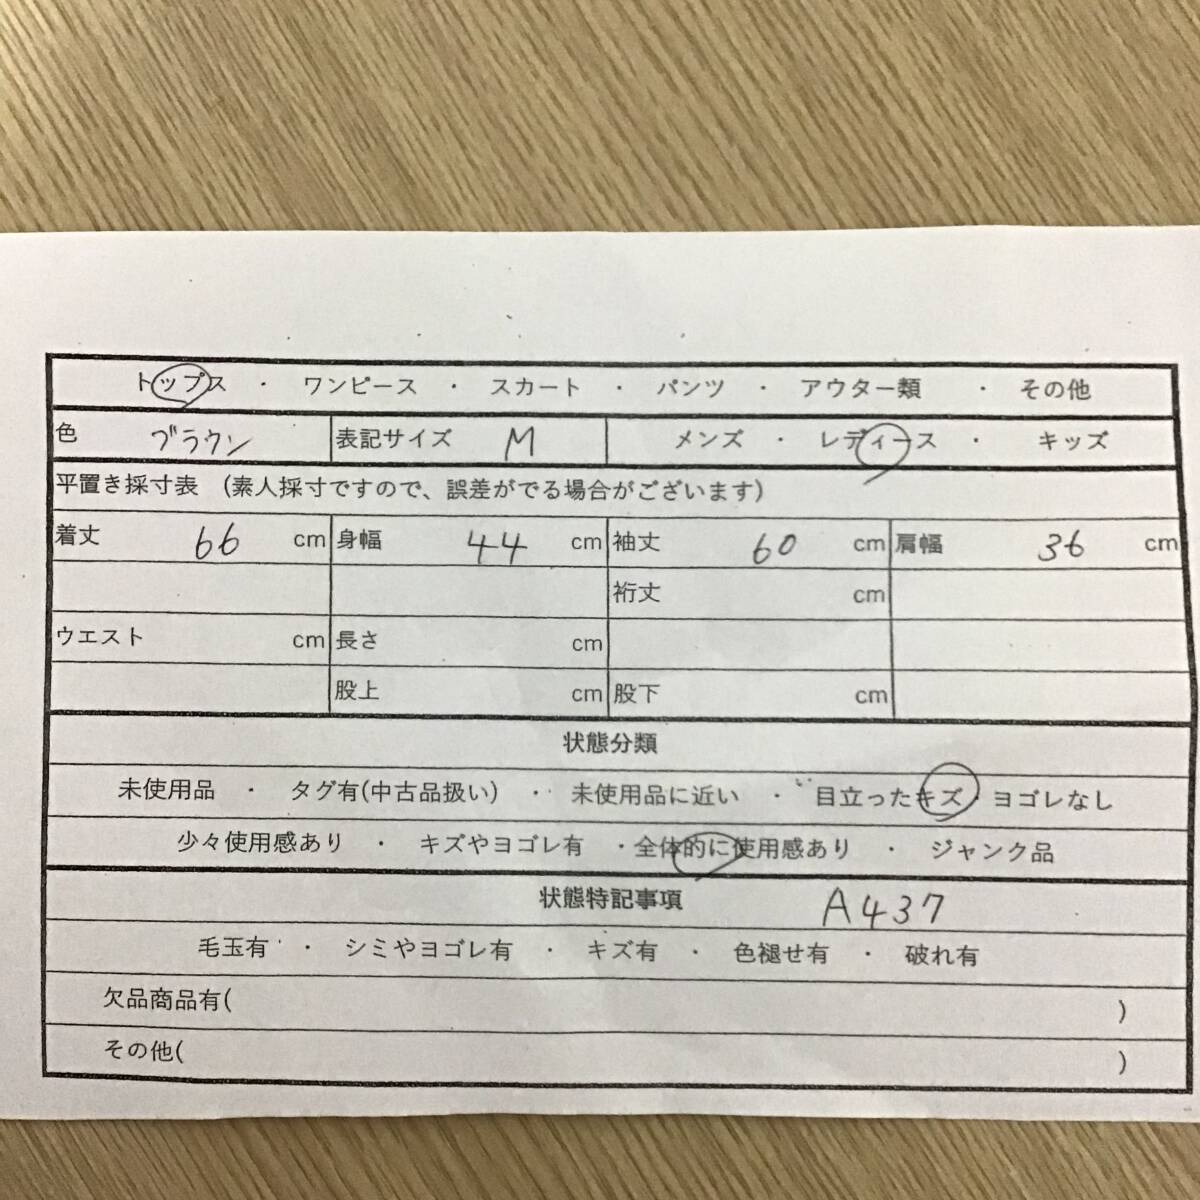 トップス ・ ワンピース ・ スカート ・ パンツ ・ アウター類 ・ その他
色 ブラウン 表記サイズ M メンズ ・ レディース ・ キッズ
平置き採寸表 (素人採寸ですので、誤差がでる場合がございます)
着丈 66 cm 身幅 44 cm 袖丈 60 cm 肩幅 36 cm
裄丈 cm
ウエスト cm 長さ cm
股上 cm 股下 cm
状態分類
未使用品 ・ タグ有(中古品扱い) ・ 未使用品に近い ・ 目立ったキズ・ヨゴレなし
少々使用感あり ・ キズやヨゴレ有 ・全体的に使用感あり ・ ジャンク品
状態特記事項 A437
毛玉有 ・ シミやヨゴレ有 ・ キズ有 ・ 色褪せ有 ・ 破れ有
欠品商品有( )
その他( )